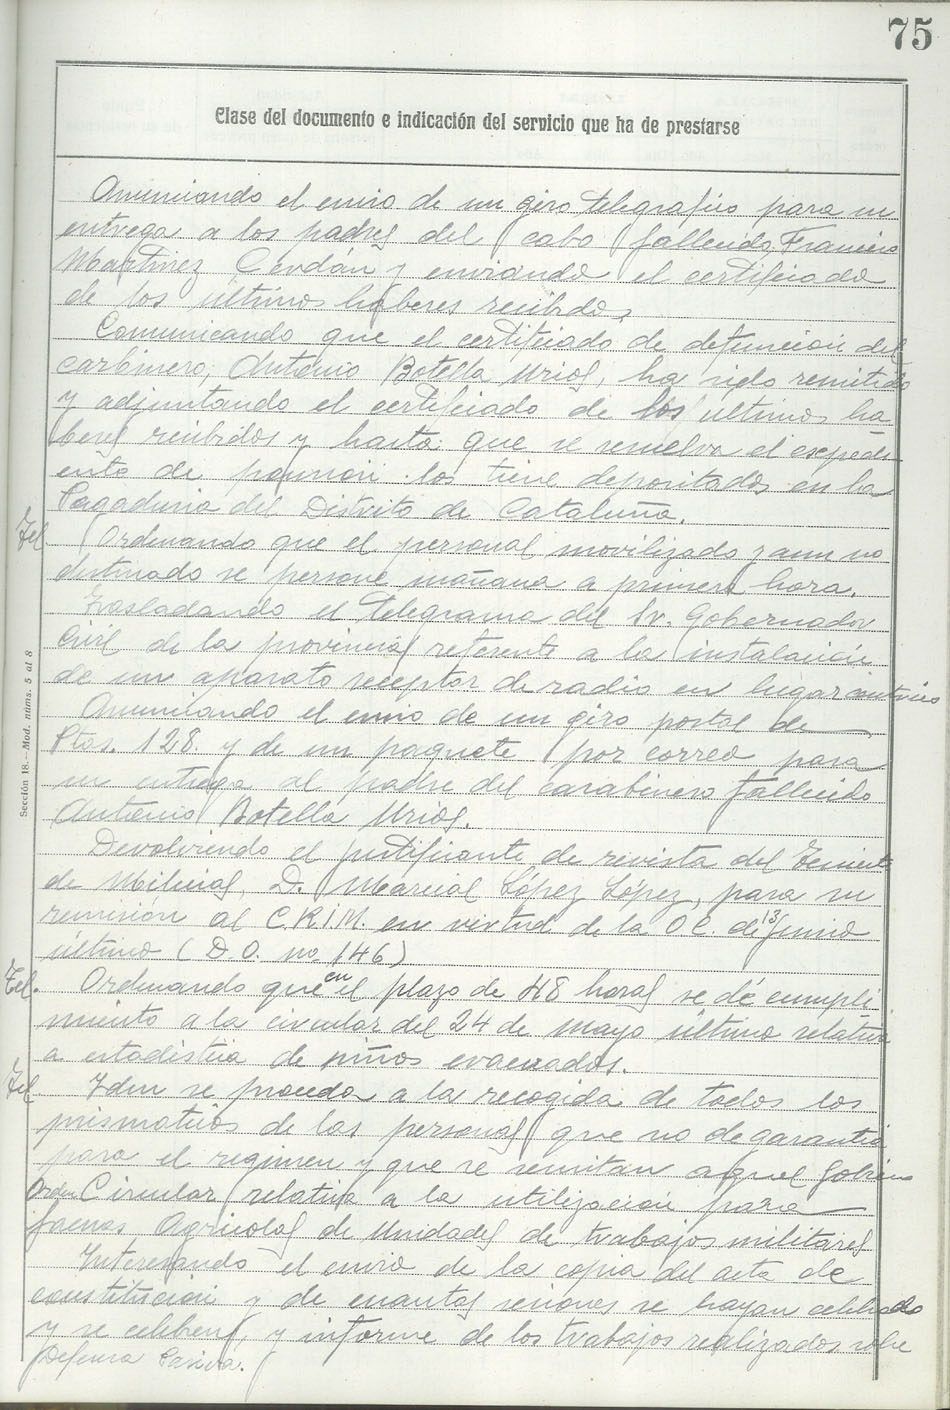 75
Clase del documento e indicación del servicio que ha de prestarse
Anunciando el envio de un giro telegrafico para su
entrega a los padres del cabo fallecido, Francisco
Martinez Cerdán y enviando el certificado
de los ultimos haberes recibidos.
Comunicando que el certificado de defunción del
carbinero, Antonio Botella Urios, ha sido remitido
y adjuntando el certificado de los ultimos ha
beres recibidos y hasta que se resuelva el expedi
ente de pension los tiene depositados en la
Pagaduria del Distrito de Cataluña.
Tel. Ordenando que el personal movilizado y aun no
destinado se persone mañana a primera hora.
Trasladando el telegrama del Sr. Gobernador
Civil de la provincia referente a la instalación
de un aparato receptor de radio en lugar
Anunciando el envio de un giro postal de
Ptas. 128. y de un paquete por correo para
su entrega al padre del carabinero fallecido
Antonio Botella Urios.
Devolviendo el justificante de revista del Teniente
de Milicias, D. Marcial López López, para su
remisión al C.R.I.M. en virtud de la O.C. de 13 Junio
ultimo (D.O. no 146)
Tel. Ordenando que en el plazo de 48 horas se dé cumpli
miento a la circular del 24 de Mayo último relativa
a estadistica de niños evacuados.
Tel. Idem se proceda a la recogida de todos los
prismaticos de las personas que no de garantia
para el regimen y que se remitan a aquel Gobierno
Orden Circular relativa a la utilización para
faenas Agricolas de Unidades de trabajos militares
Interesando el envio de la copia del acta de
constitución y de cuantas sesiones se hayan celebrado
y se celebren, y informe de los trabajos realizados sobre
Defensa Pasiva.
Sección 18.—Mod. núms. 5 al 8